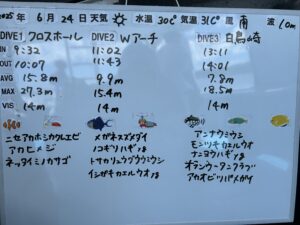 2025年 6月 24日 天気 水温 30℃ 気温 31℃ 風 南 波 1.0m
DIVE1 クロスホール DIVE2 Wアーチ DIVE3
IN 9:32 11:02 13:11
OUT 10:07 11:43 14:01
AVG 15.8m 9.9m 7.8m
MAX 27.3m 15.4m 18.5m
VIS 14m 14m 14m
ニセアカホシカクレエビ メガネスズメダイ アンナウミウシ
アカヒメジ ノコギリハギyg モンツキカエルウオ
ネッタイミノカサゴ トサカリュウグウウミウシ ナンヨウハギyg
イシガキカエルウオyg オランウータンクラブ
アカオビハナダイ